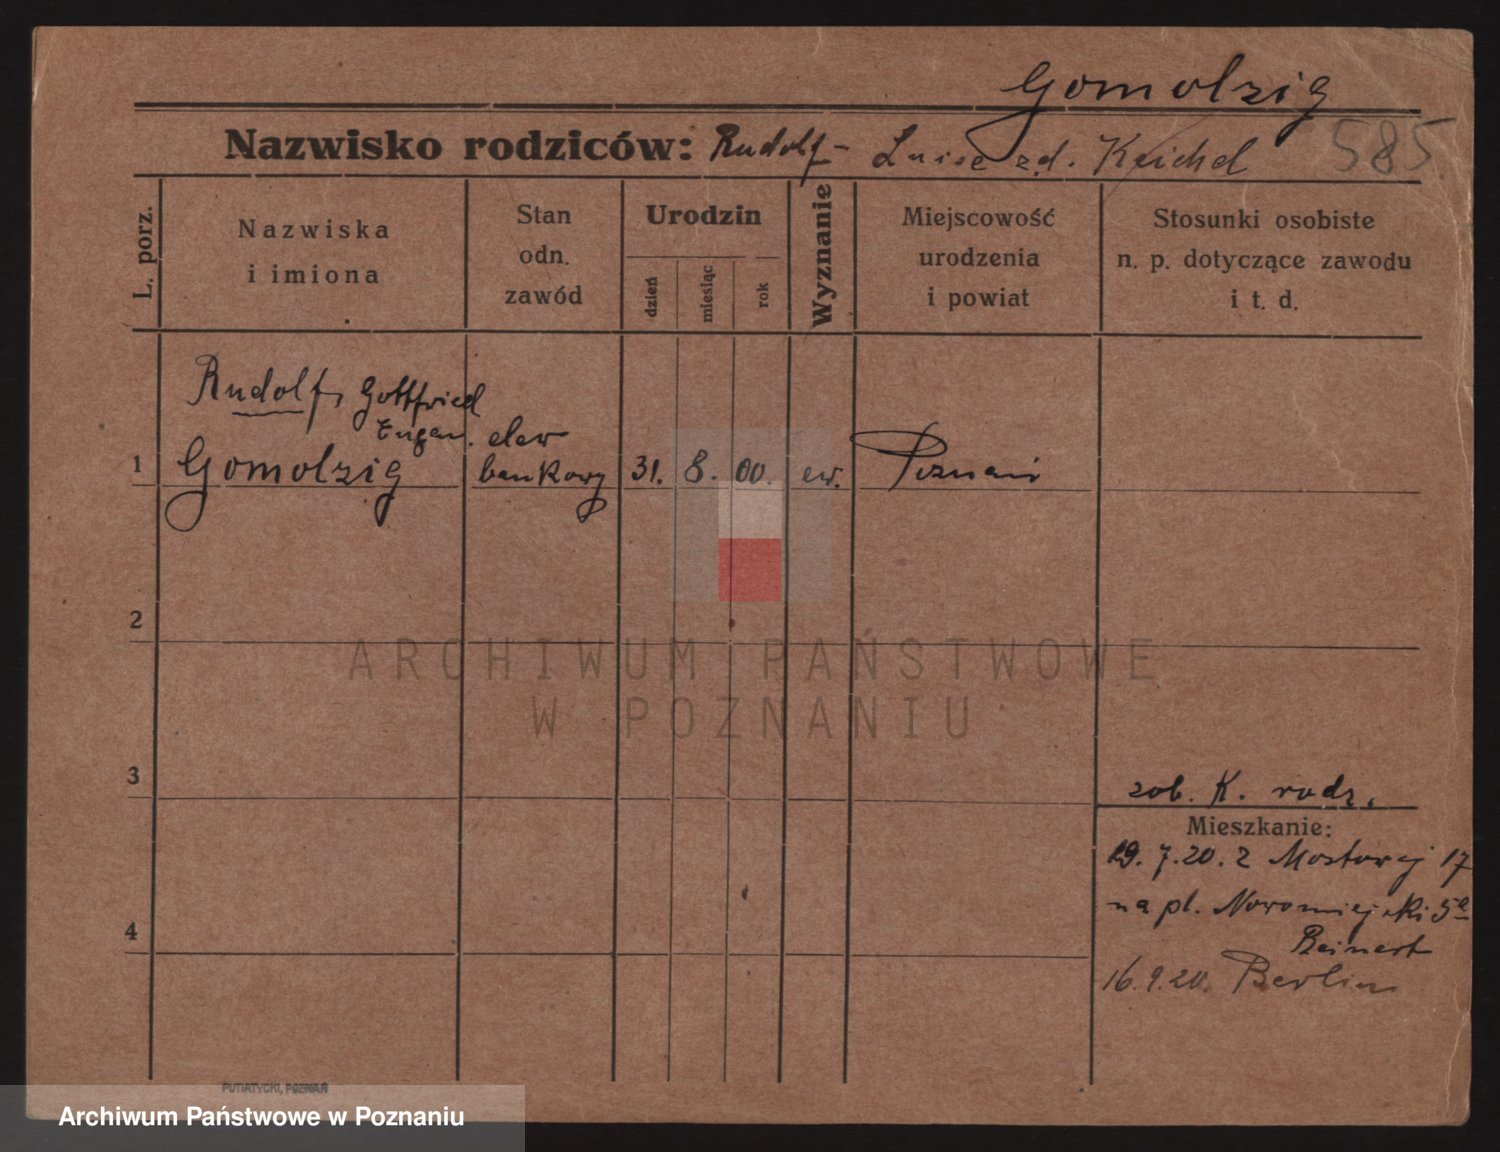 Gomolzig
Nazwisko rodziców: Rudolf - Luise z d. Reichel 585.
L. porz.
Nazwiska
i imiona
Stan
odn.
zawód
Urodzin
dzień
miesiąc
rok
Wyznanie
Miejscowość
urodzenia
i powiat
Stosunki osobiste
n. p. dotyczące zawodu
i t. d.
Rudolf, Gottfried
Eugen.
1 Gomolzig elew bankowy 31. 8. 00. ew. Poznań
2
ARCHIWUM PAŃSTWOWE
W POZNANIU
3
zob. K. rodz.
Mieszkanie:
19. 7. 20. z Mostowej 17
na pl. Nowomiejski 5a
Beinert
4
16. 9. 20. Berlin
PUTIATYCKI, POZNAŃ
Archiwum Państwowe w Poznaniu